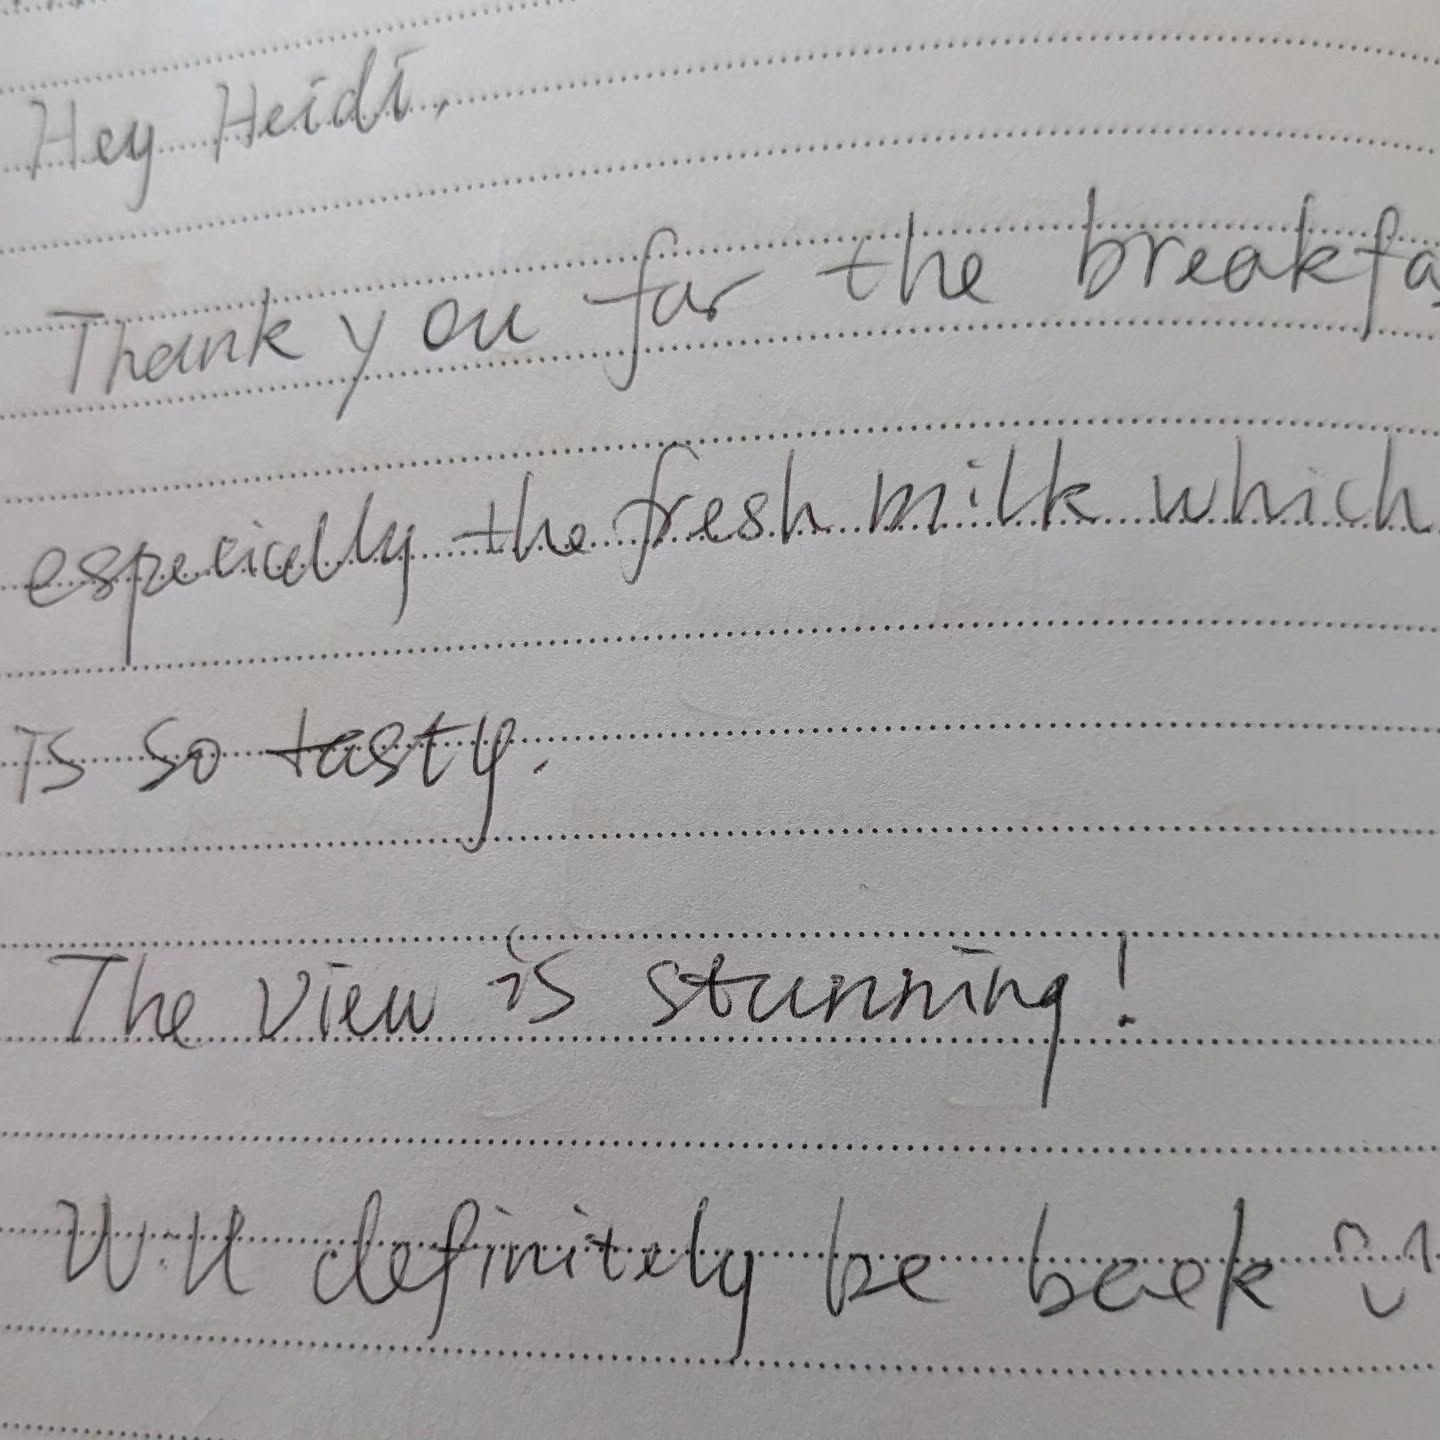 Hey Heidi,
Thank you for the breakfa
especially the fresh milk which
is so tasty.
The view is stunning!
Will definitely be back